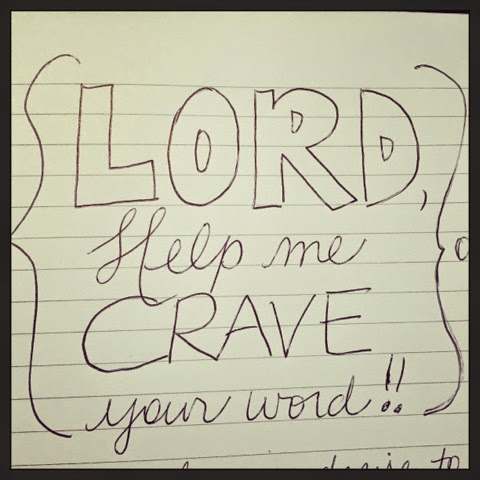 LORD,
Help me
CRAVE
your word!!
desire to